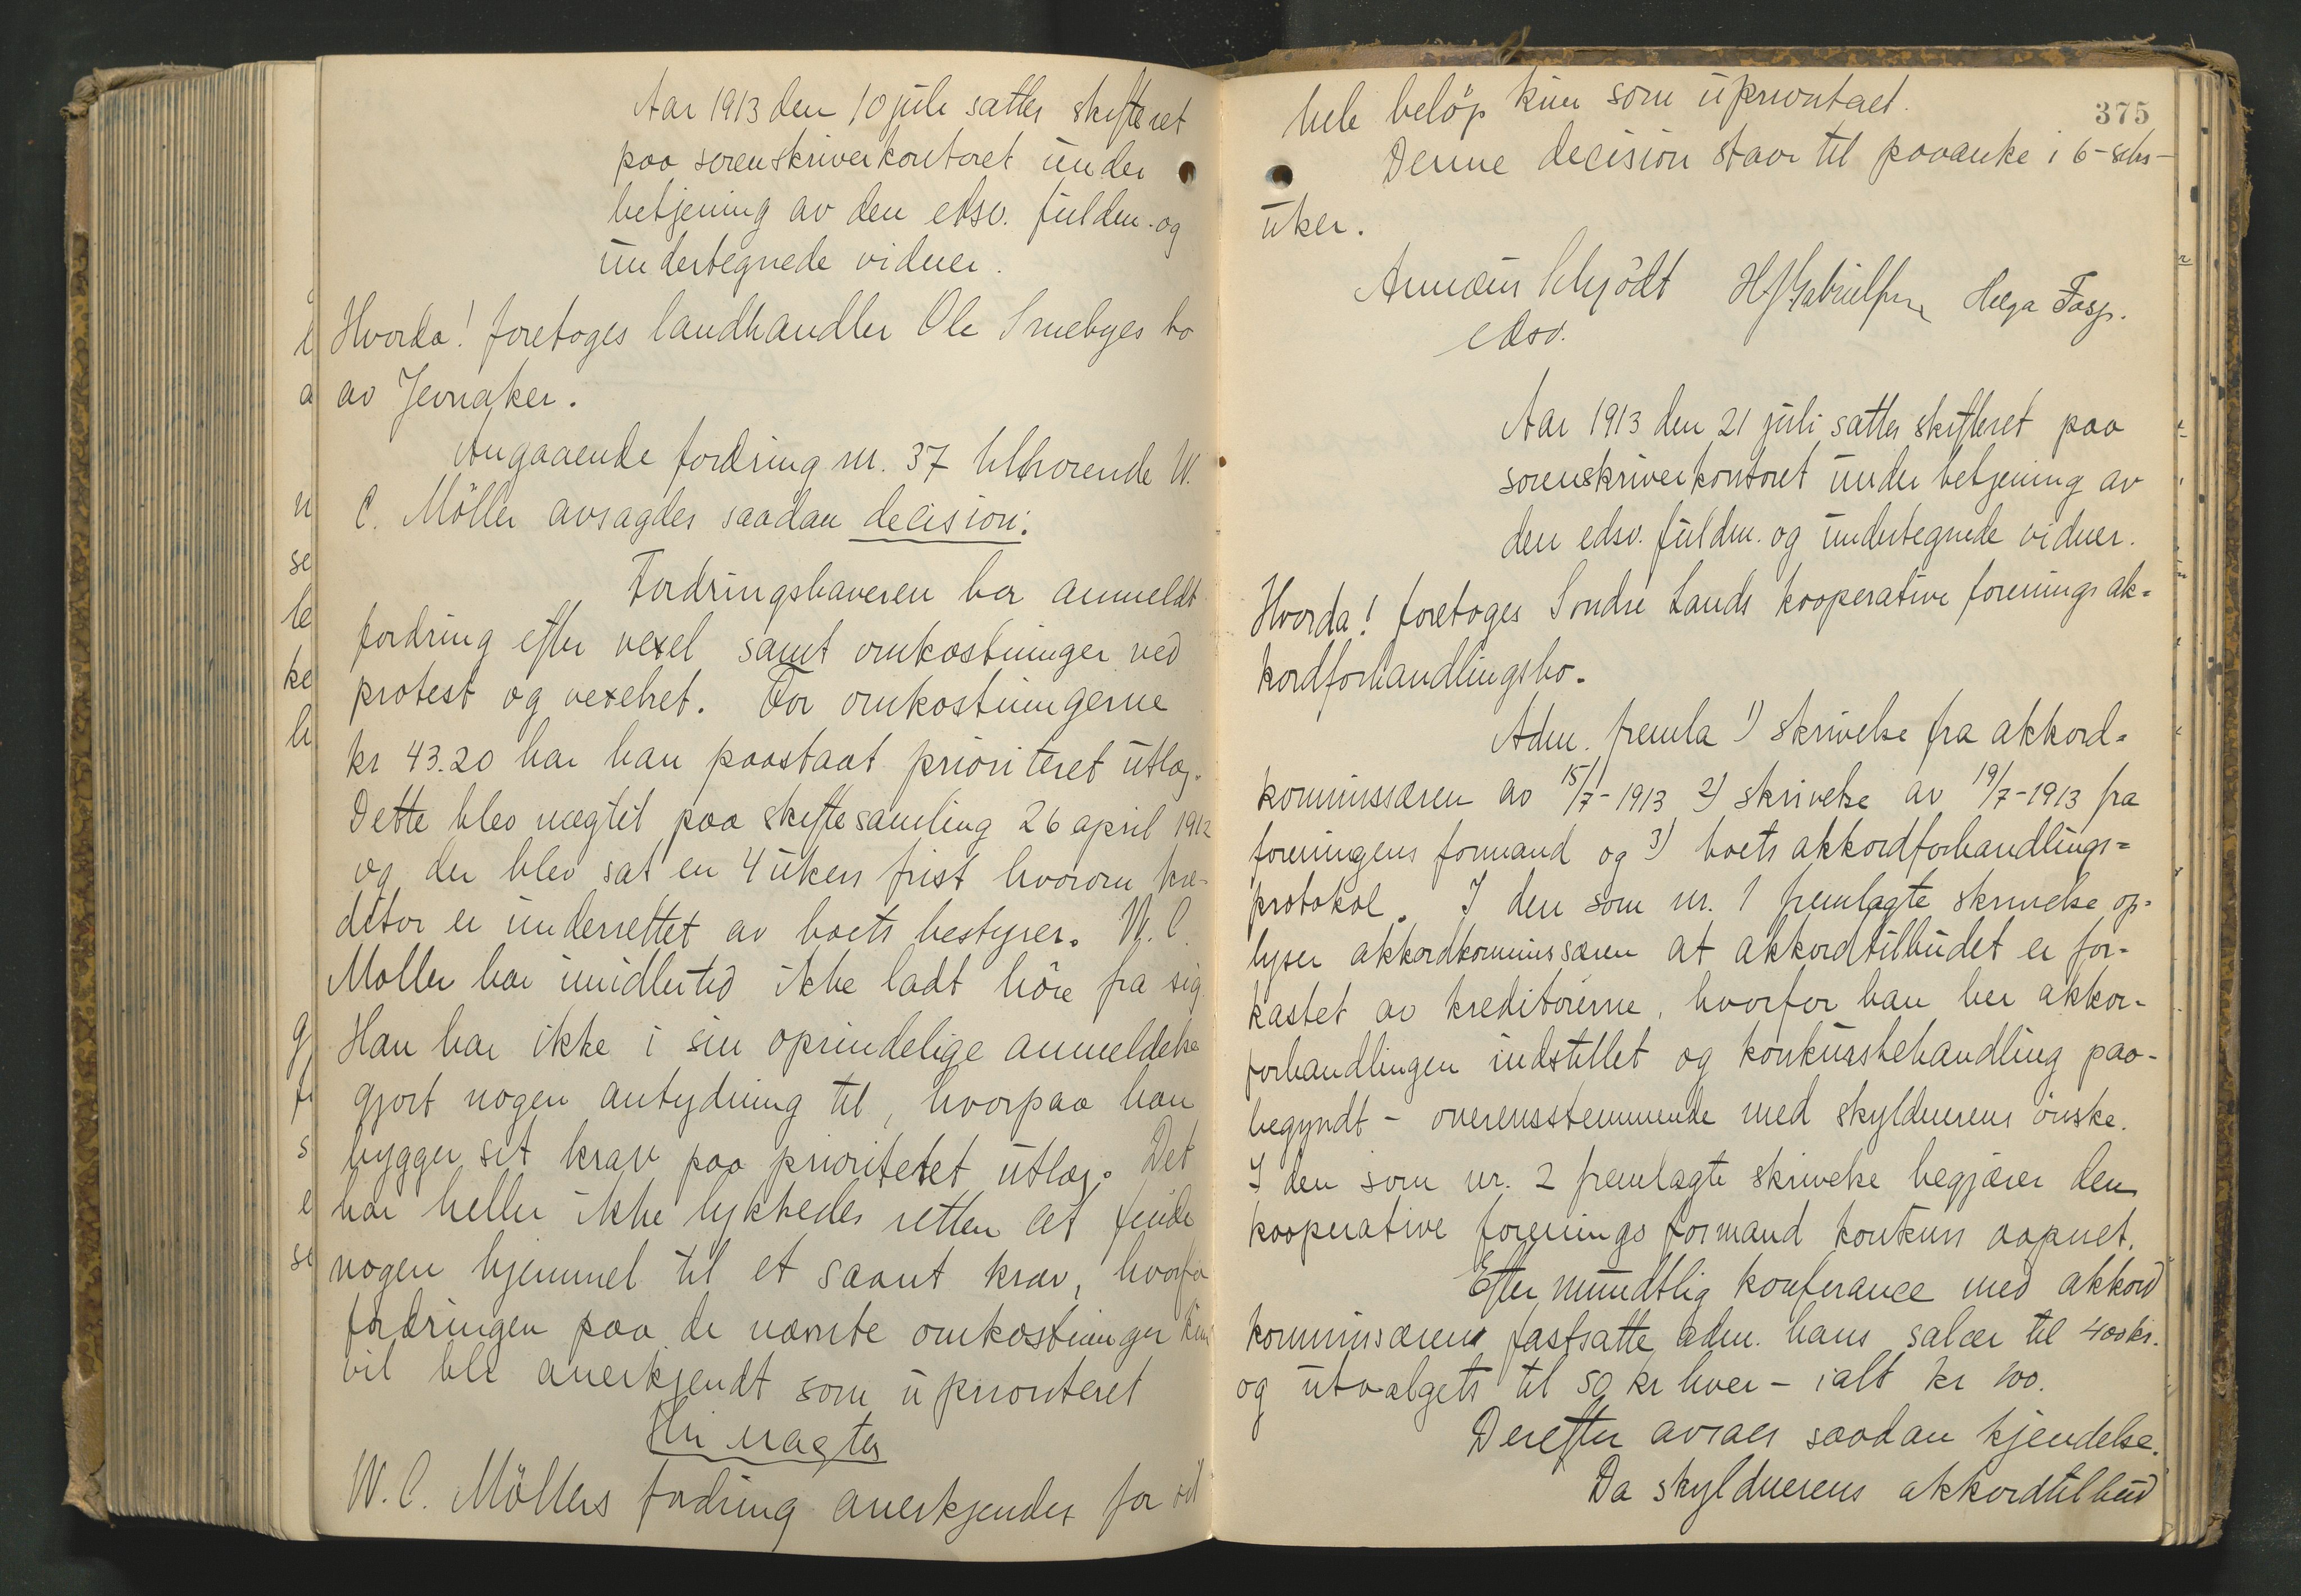 Aar 1913 den 10 juli sattes skifteret
paa sorenskriverkontoret under
betjening av den edsv. fuldm. og
undertegnede vidner.
Hvorda! foretoges landhandler Ole Smebyes bo
av Jevnaker.
Angaaende fordring nr. 37 tilhørende W.
C. Möller avsagdes saadan decision:
Fordringshaveren har anmeldt
fordring efter vexel samt omkostninger ved
protest og vexelret. For omkostningerne
kr 43.20 har han paastaat prioriteret utlæg.
Dette blev nægtet paa skiftesamling 26 april 1912
og der blev sat en 4 ukers frist hvorom kre-
ditor er underrettet av boets bestyrer. W. C.
Møller har imidlertid ikke ladt höre fra sig.
Han har ikke i sin oprindelige anmeldelse
gjort nogen antydning til, hvorpaa han
bygger sit krav paa prioritetet utlæg. Det
har heller ikke lykkedes retten at finde
nogen hjemmel til et saant krav, hvorfor
fordringen paa de nævnte omkostninger kun
vil bli anerkjendt som uprioriteret
Thi eragtes
W. C. Möllers fordring anerkjendes for sit
375
hele belöp kun som uprioritert.
Denne decision staar til paaanke i 6-seks-
uker.
Annæus Schjödt H. Gabrielsen Helga Fasp.
edsv.
Aar 1913 den 21 juli sattes skifteret paa
sorenskriverkontoret under betjening av
den edsv. fuldm. og undertegnede vidner.
Hvorda! foretoges Søndre Lands kooperative forenings ak=
kordforhandlingsbo.
Adm. fremla 1) skrivelse fra akkord=
kommissæren av 15/7-1913 2) skrivelse av 19/7-1913 fra
foreningens formand og 3) boets akkordforhandlings=
protokol. I den som nr. 1 fremlagte skrivelse op=
lyser akkordkommissæren at akkordtilbudet er for-
kastet av kreditorerne, hvorfor han ber akkor-
forhandlingen indstillet og konkursbehandling paa-
begyndt - overensstemmende med skyldnerens önske.
I den som nr. 2 fremlagte skrivelse begjærer den
kooperative forenings formand konkurs aapnet.
Efter mundtlig konferance med akkord
kommissæren fastsatte adm. hans salær til 400 kr.
og utvalgets til 50 kr hver - ialt kr 100.
Derefter avsaes saadan kjendelse.
Da skyldnerens akkordtilbud